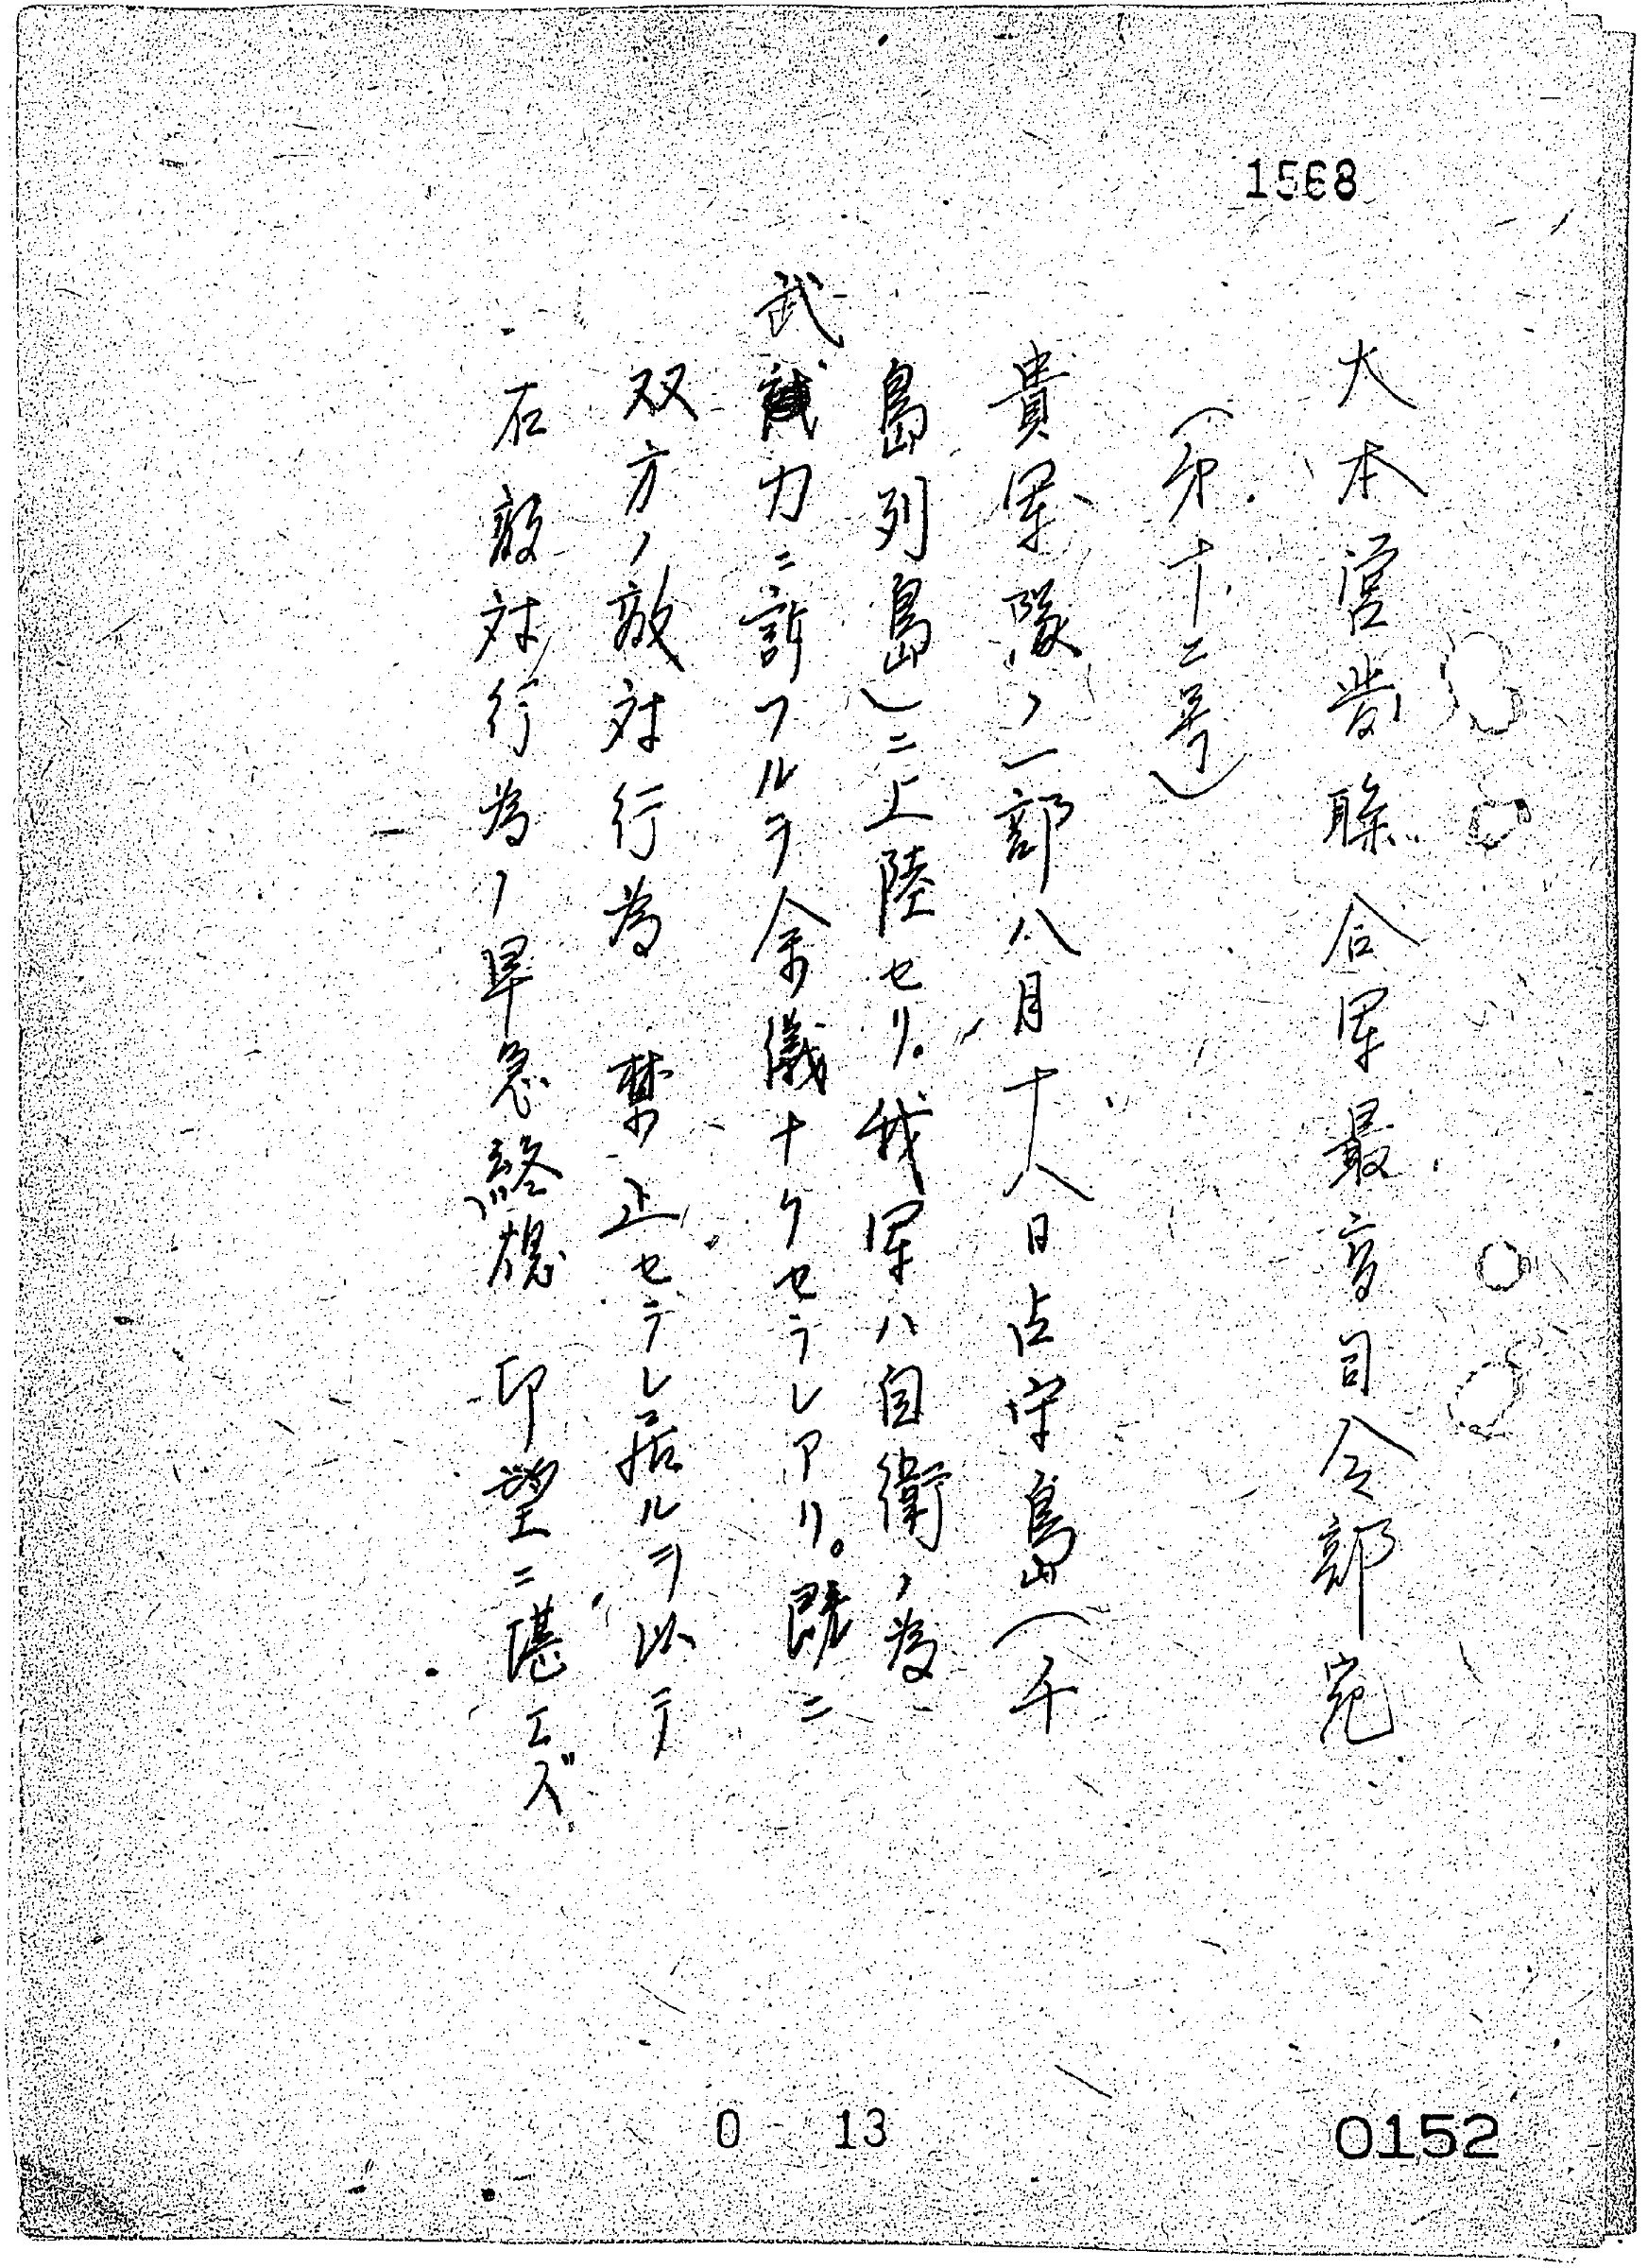 1568
大本営発聯合軍最高司令部宛
(第十二号)
貴軍隊ノ一部八月十八日占守島(千
島列島)ニ上陸セリ。我軍ハ自衛ノ為
武力ニ訴フルヲ余儀ナクセラレアリ。既ニ
双方ノ敵対行為禁止セラレ居ルヲ以テ
右敵対行為ノ早急終熄印望ニ堪エズ
0 13
0152